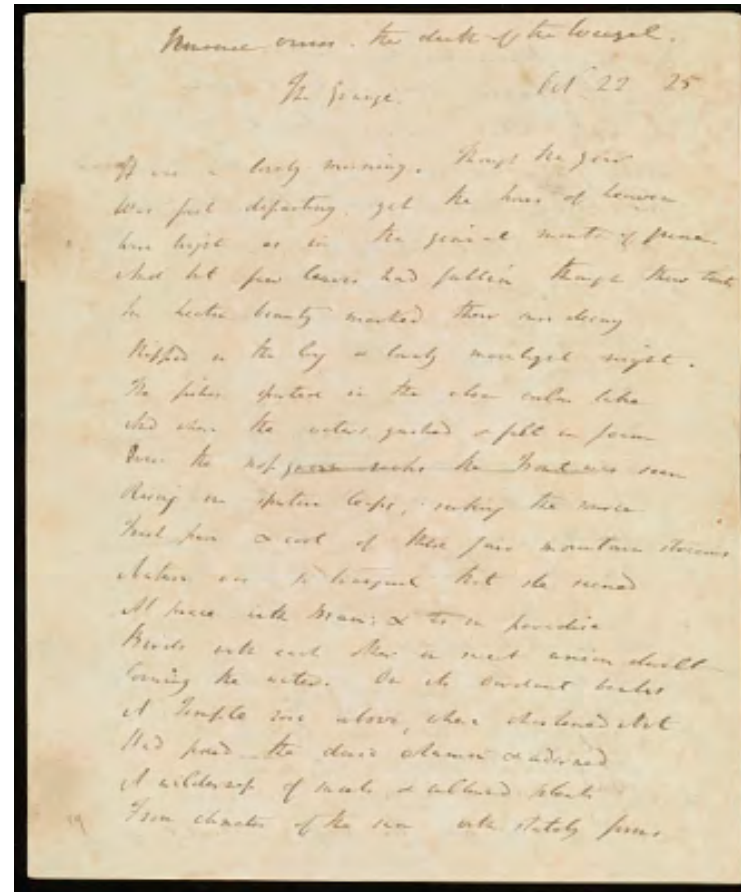 verses. the death of the
The Grange. Oct 22 25
It was a lovely morning. Though the year
Was fast departing, yet the hues of heaven
were bright as in the genial month of June.
And but few leaves had fallen though their tints
In hectic beauty marked their own decay
Nipped in the by a lovely moonlight night.
The fishes sported in the clear calm lake
And where the waters gushed & fell in foam
Over the was seen
Rising in sportive leaps, seeking the source
pure & cool of these fair mountain streams
Nature was so tranquil that she seemed
At peace with Man; & as in paradise
Birds with each other in sweet union dwelt
the water. On its verdant banks
A Temple rose above, where chastened Art
Had the column & adorned
A wilderness of sweets, & cultured plants
From climates of the sun with stately